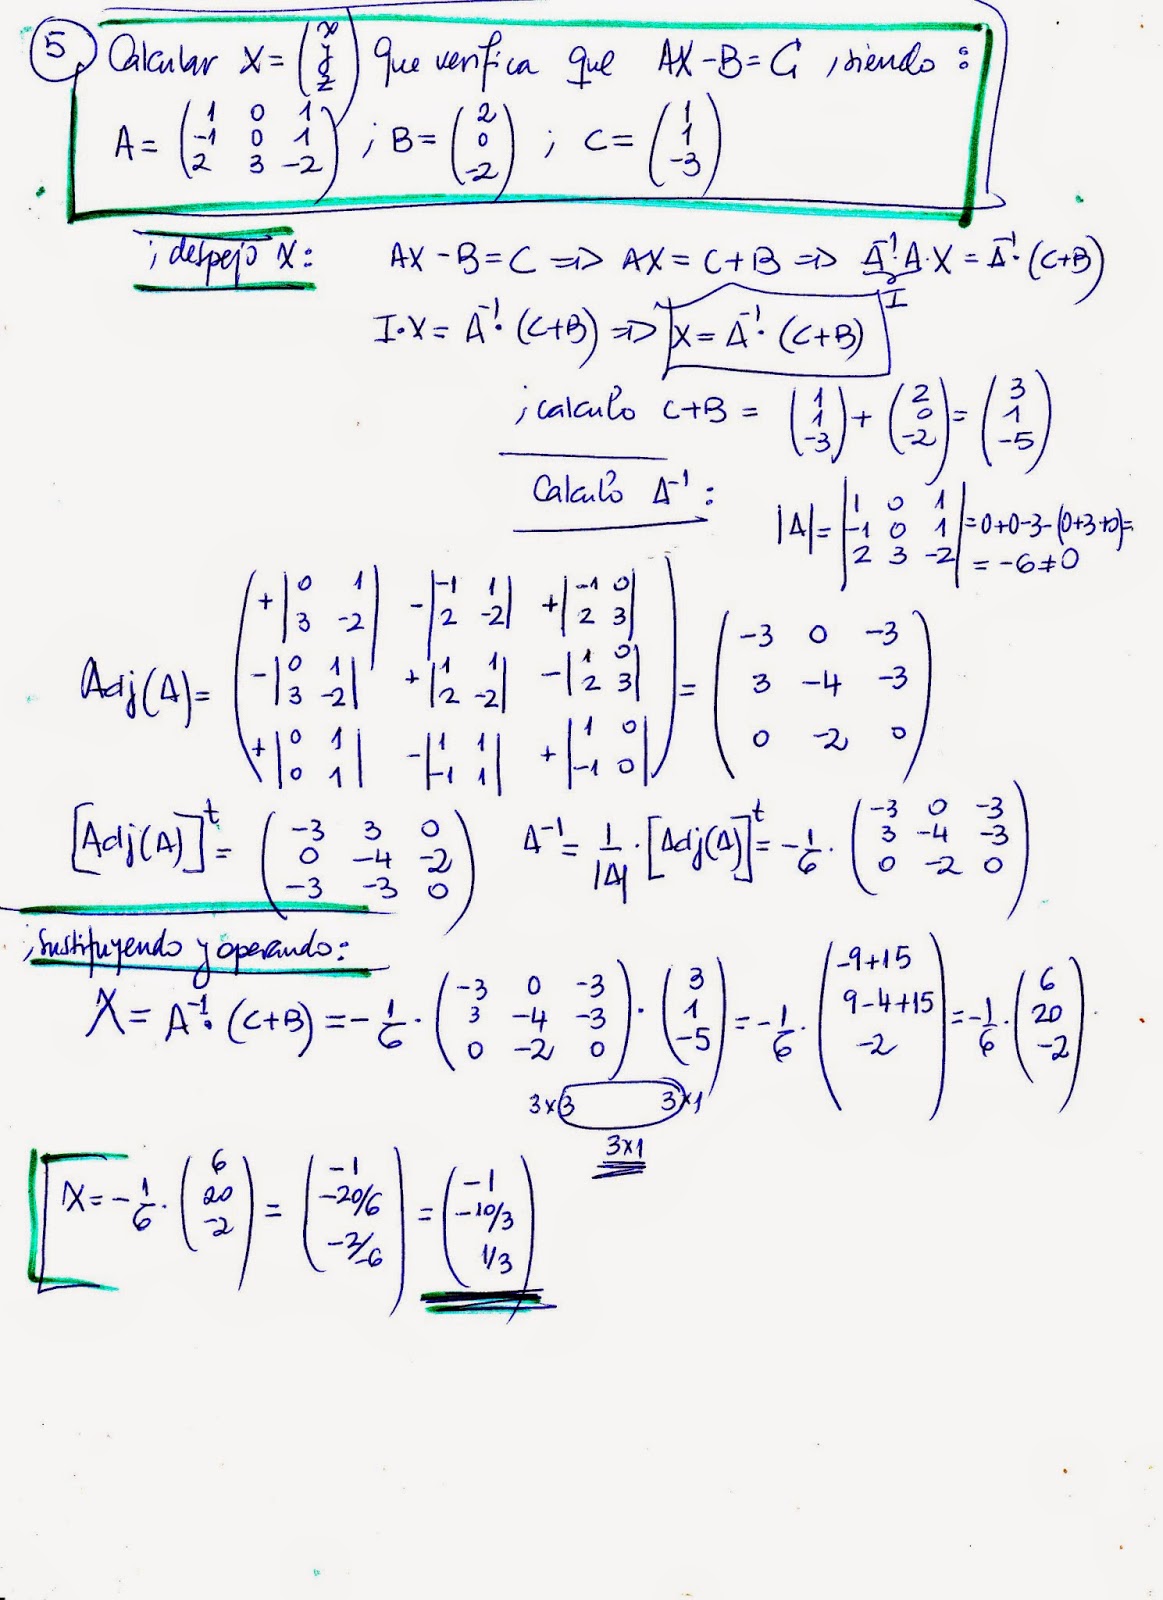 5 Calcular X = (x y z) que verifica que AX - B = C, siendo:
A = (1 0 1 / -1 0 1 / 2 3 -2) ; B = (2 / 0 / -2) ; C = (1 / 1 / -3)
¡despejo X: AX - B = C => AX = C + B => A⁻¹·A·X = A⁻¹·(C+B)
I
I·X = A⁻¹·(C+B) => X = A⁻¹·(C+B)
¡calculo C+B = (1 / 1 / -3) + (2 / 0 / -2) = (3 / 1 / -5)
Calculo A⁻¹:
|A| = |1 0 1 / -1 0 1 / 2 3 -2| = 0+0-3-(0+3+0) =
= -6 ≠ 0
Adj(A) = (+|0 1 / 3 -2| -|-1 1 / 2 -2| +|-1 0 / 2 3| / -|0 1 / 3 -2| +|1 1 / 2 -2| -|1 0 / 2 3| / +|0 1 / 0 1| -|1 1 / -1 1| +|1 0 / -1 0|) = (-3 0 -3 / 3 -4 -3 / 0 -2 0)
[Adj(A)]ᵗ = (-3 3 0 / 0 -4 -2 / -3 -3 0) A⁻¹ = 1/|A| · [Adj(A)]ᵗ = -1/6 · (-3 0 -3 / 3 -4 -3 / 0 -2 0)
¡Sustituyendo y operando:
X = A⁻¹·(C+B) = -1/6 · (-3 0 -3 / 3 -4 -3 / 0 -2 0) · (3 / 1 / -5) = -1/6 · (-9+15 / 9-4+15 / -2) = -1/6 · (6 / 20 / -2)
3×3 3×1
3×1
X = -1/6 · (6 / 20 / -2) = (-1 / -20/6 / -2/-6) = (-1 / -10/3 / 1/3)